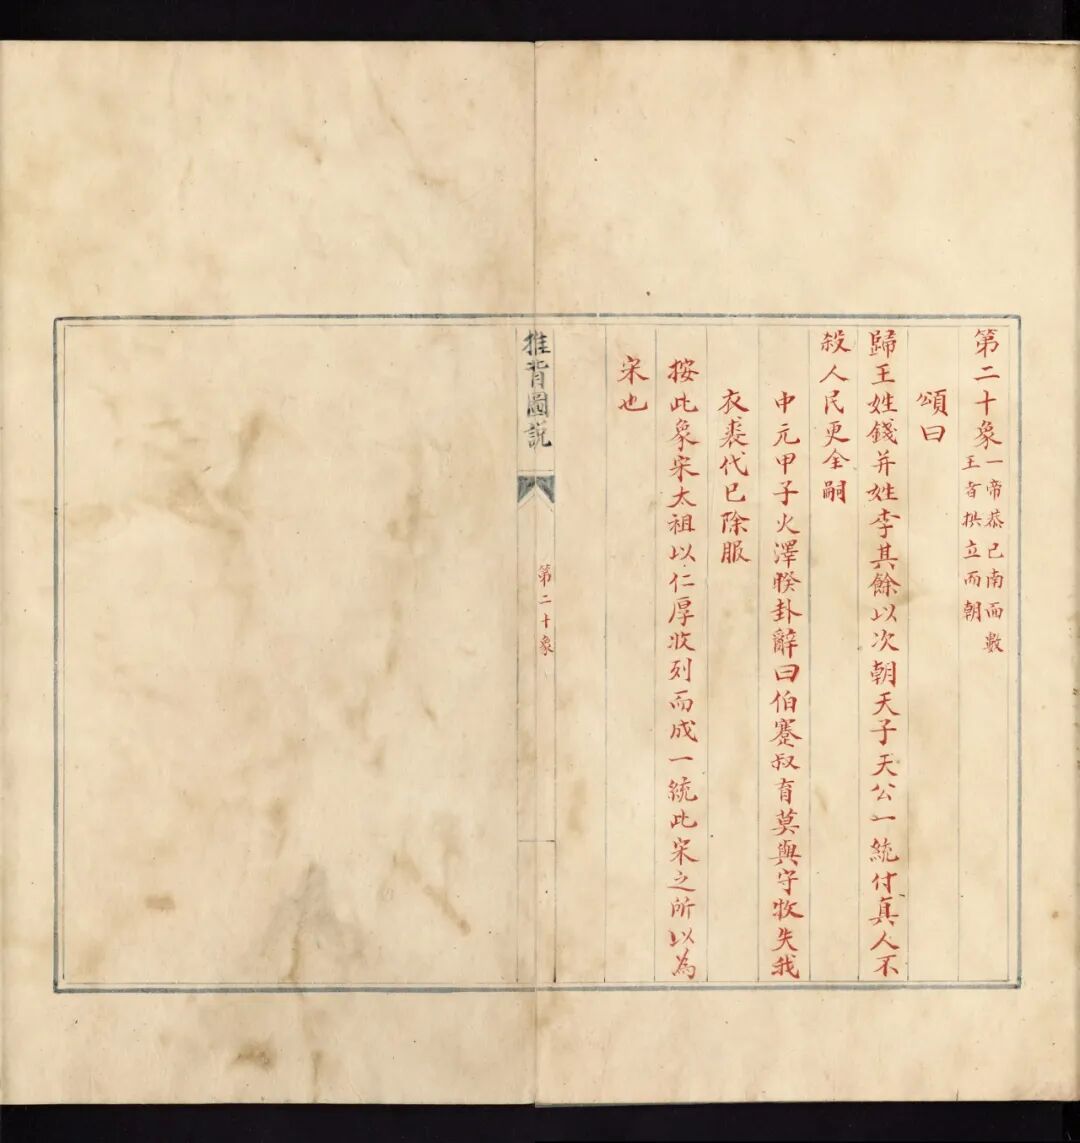 第二十象一帝恭己南面數
王者拱立而朝
頌曰
歸王姓錢并姓李其餘以次朝天子天公一統付真人不
殺人民更全嗣
中元甲子火澤睽卦辭曰伯蹇叔育莫與守牧失我
衣裘代已除服
按此象宋太祖以仁厚收列而成一統此宋之所以為
宋也
推背圖說
第二十象